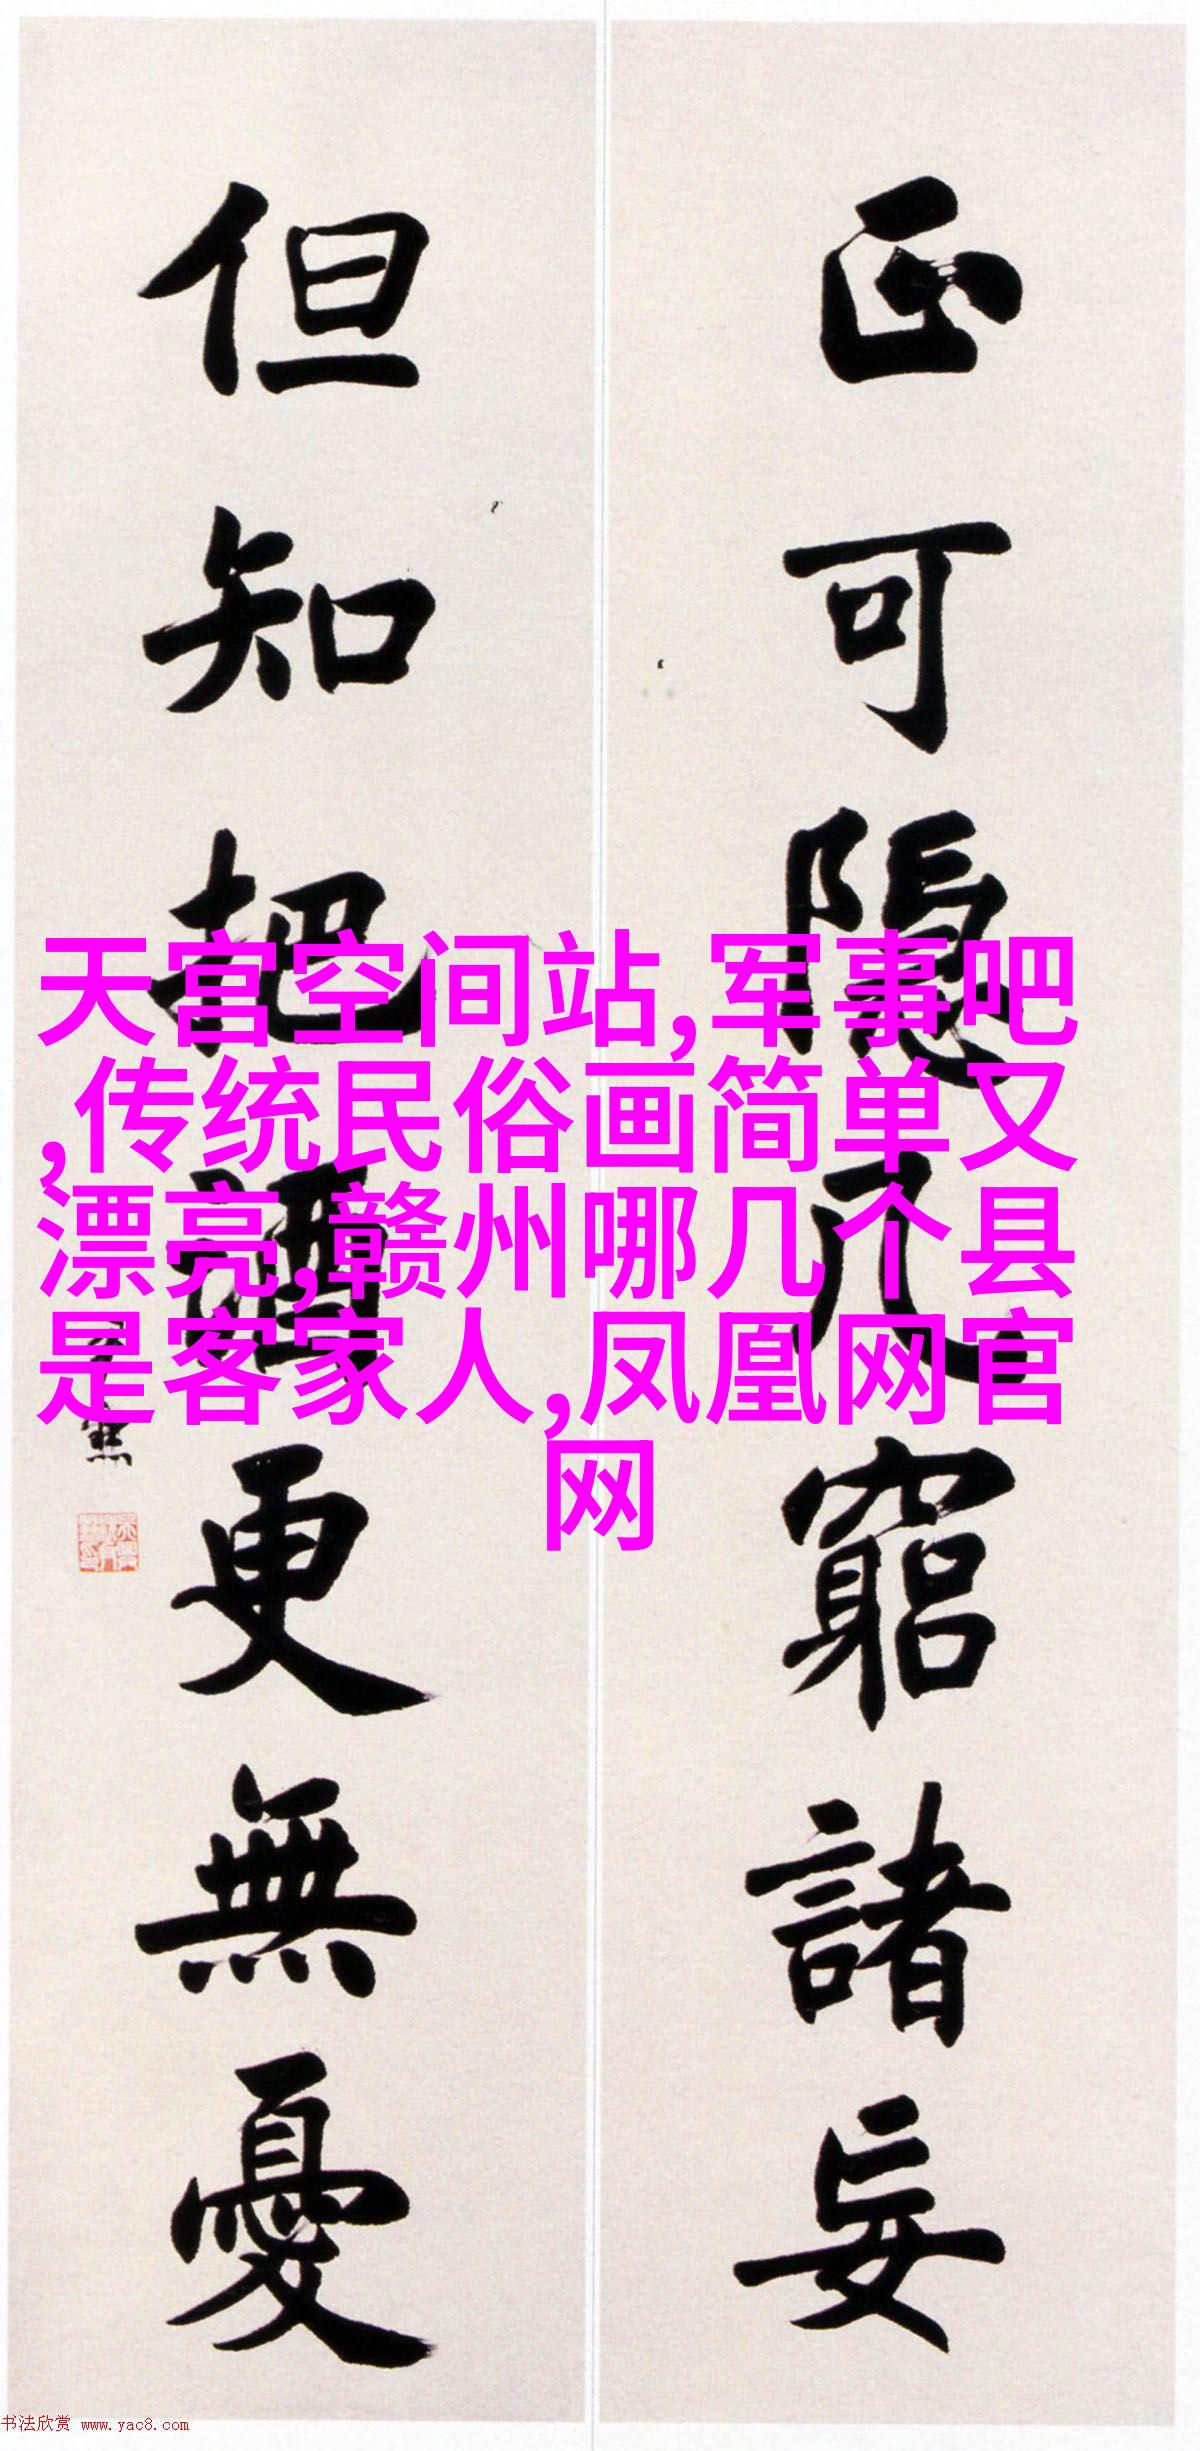 正可隱几窮諸妄
但知把酒更無憂
天宫空间站,军事吧
,传统民俗画简单又
漂亮,赣州哪几个县
是客家人,凤凰网官
网
书法欣赏 www.yac8.com